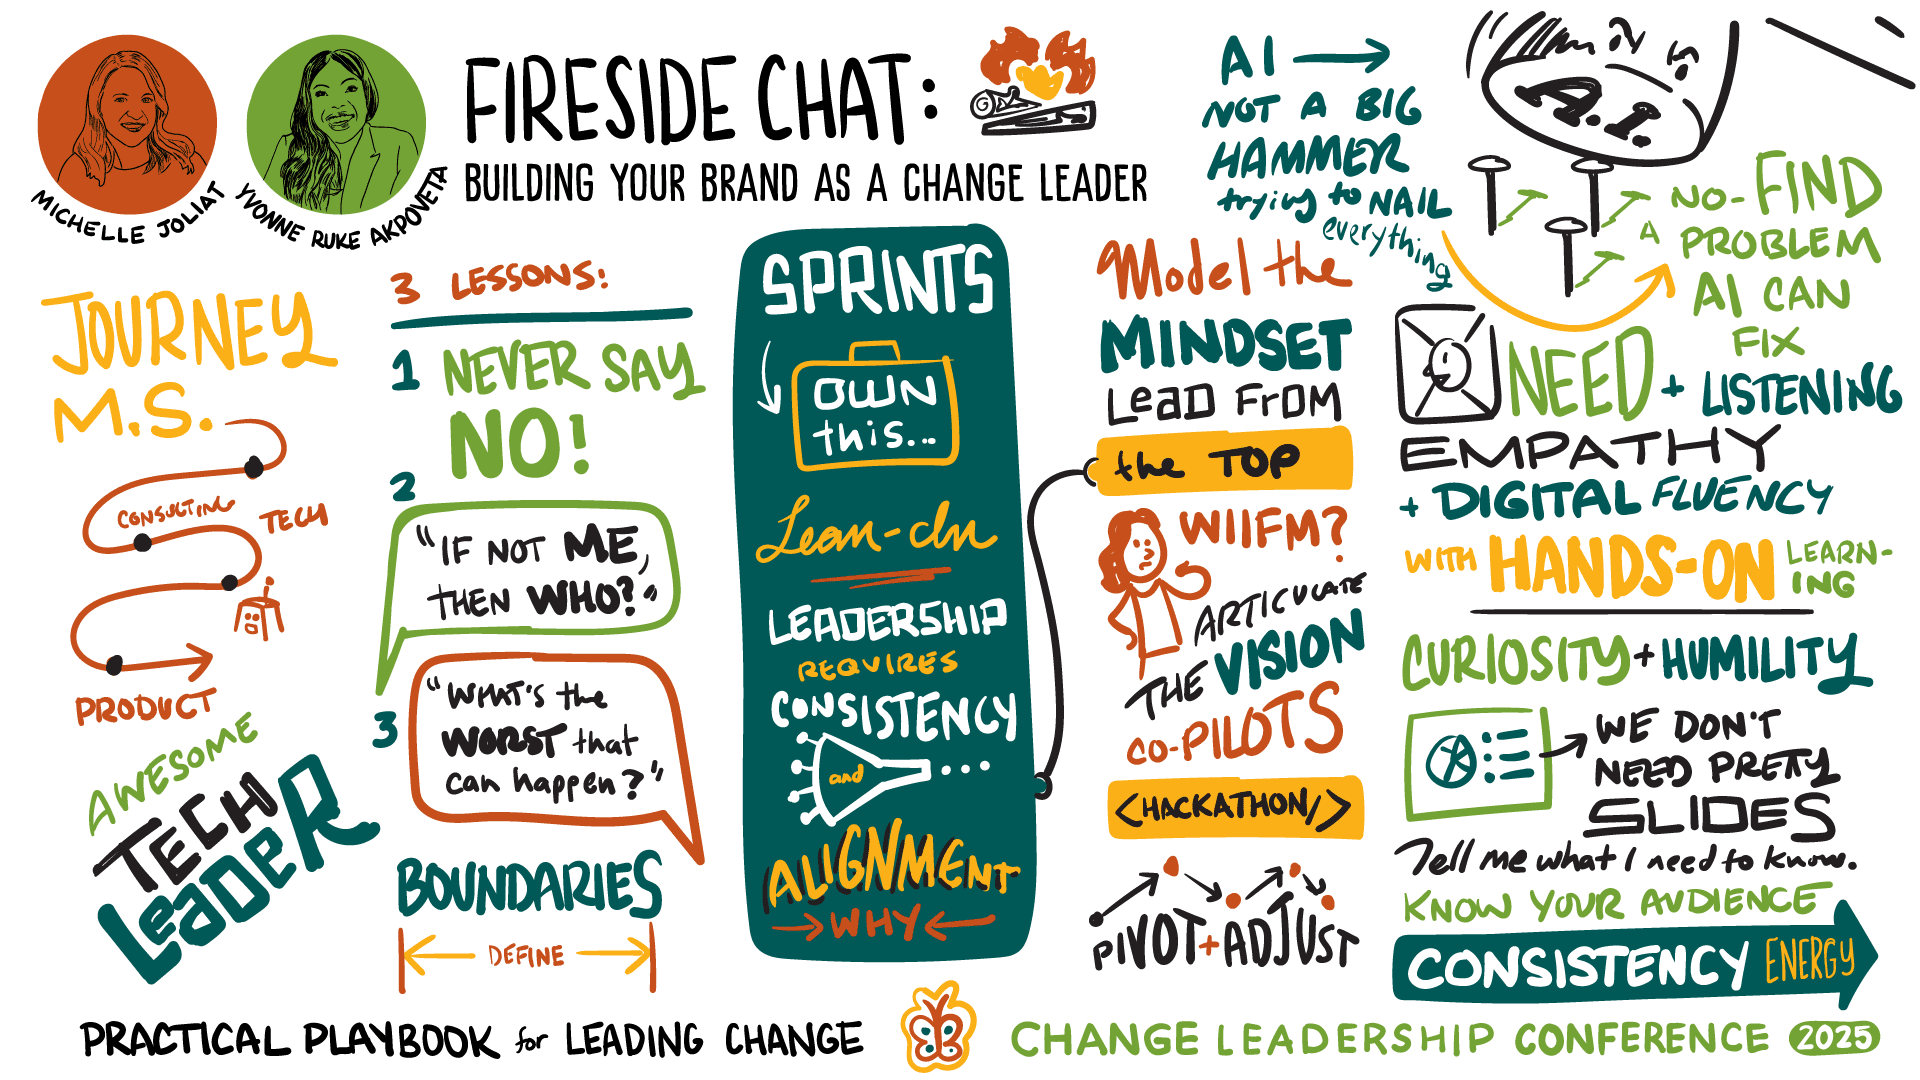 MICHELLE JOLIAT
YVONNE RUKE AKPOVETA
FIRESIDE CHAT:
BUILDING YOUR BRAND AS A CHANGE LEADER
JOURNEY
M.S.
CONSULTING
TECH
PRODUCT
AWESOME
TECH
LEADER
3 LESSONS:
1 NEVER SAY
NO!
2
"IF NOT ME,
THEN WHO?"
3
"WHAT'S the
WORST that
can happen?"
BOUNDARIES
DEFINE
SPRINTS
OWN
this...
Lean-In
LEADERSHIP
REQUIRES
CONSISTENCY
and
ALIGNMENT
WHY
Model the
MINDSET
LEAD FROM
the TOP
WIIFM?
ARTICULATE
THE VISION
CO-PILOTS
<HACKATHON/>
PIVOT + ADJUST
AI
NOT A BIG
HAMMER
trying to NAIL
everything
A.I.
NO-FIND
A PROBLEM
AI CAN
FIX
NEED + LISTENING
EMPATHY
+ DIGITAL FLUENCY
WITH HANDS-ON LEARN-
ING
CURIOSITY + HUMILITY
WE DON'T
NEED PRETTY
SLIDES
Tell me what I need to know.
KNOW YOUR AUDIENCE
CONSISTENCY ENERGY
PRACTICAL PLAYBOOK for LEADING CHANGE
CHANGE LEADERSHIP CONFERENCE 2025